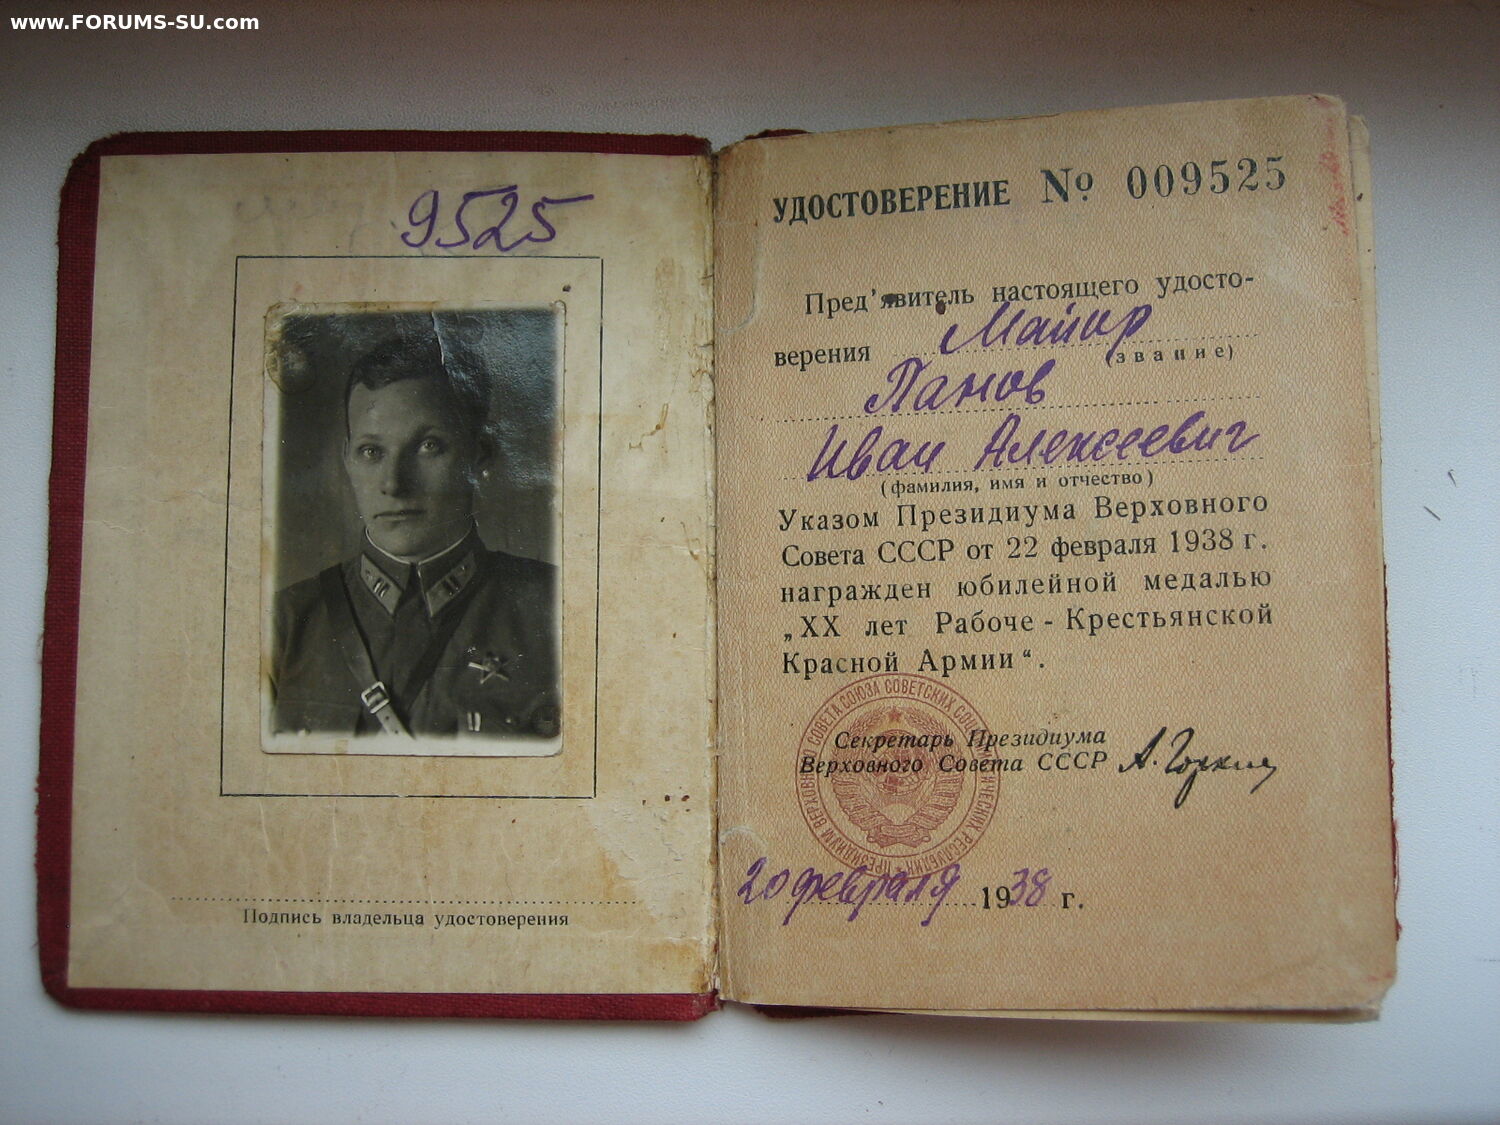 www.FORUMS-SU.com
9525
Подпись владельца удостоверения
УДОСТОВЕРЕНИЕ № 009525
Пред'явитель настоящего удосто-
верения Майор
(звание)
Панов
Иван Алексеевич
(фамилия, имя и отчество)
Указом Президиума Верховного
Совета СССР от 22 февраля 1938 г.
награжден юбилейной медалью
„XX лет Рабоче-Крестьянской
Красной Армии“.
Секретарь Президиума
Верховного Совета СССР А. Горкин
ПРЕЗИДИУМ ВЕРХОВНОГО СОВЕТА СОЮЗА СОВЕТСКИХ СОЦИАЛИСТИЧЕСКИХ РЕСПУБЛИК
20 февраля 1938 г.